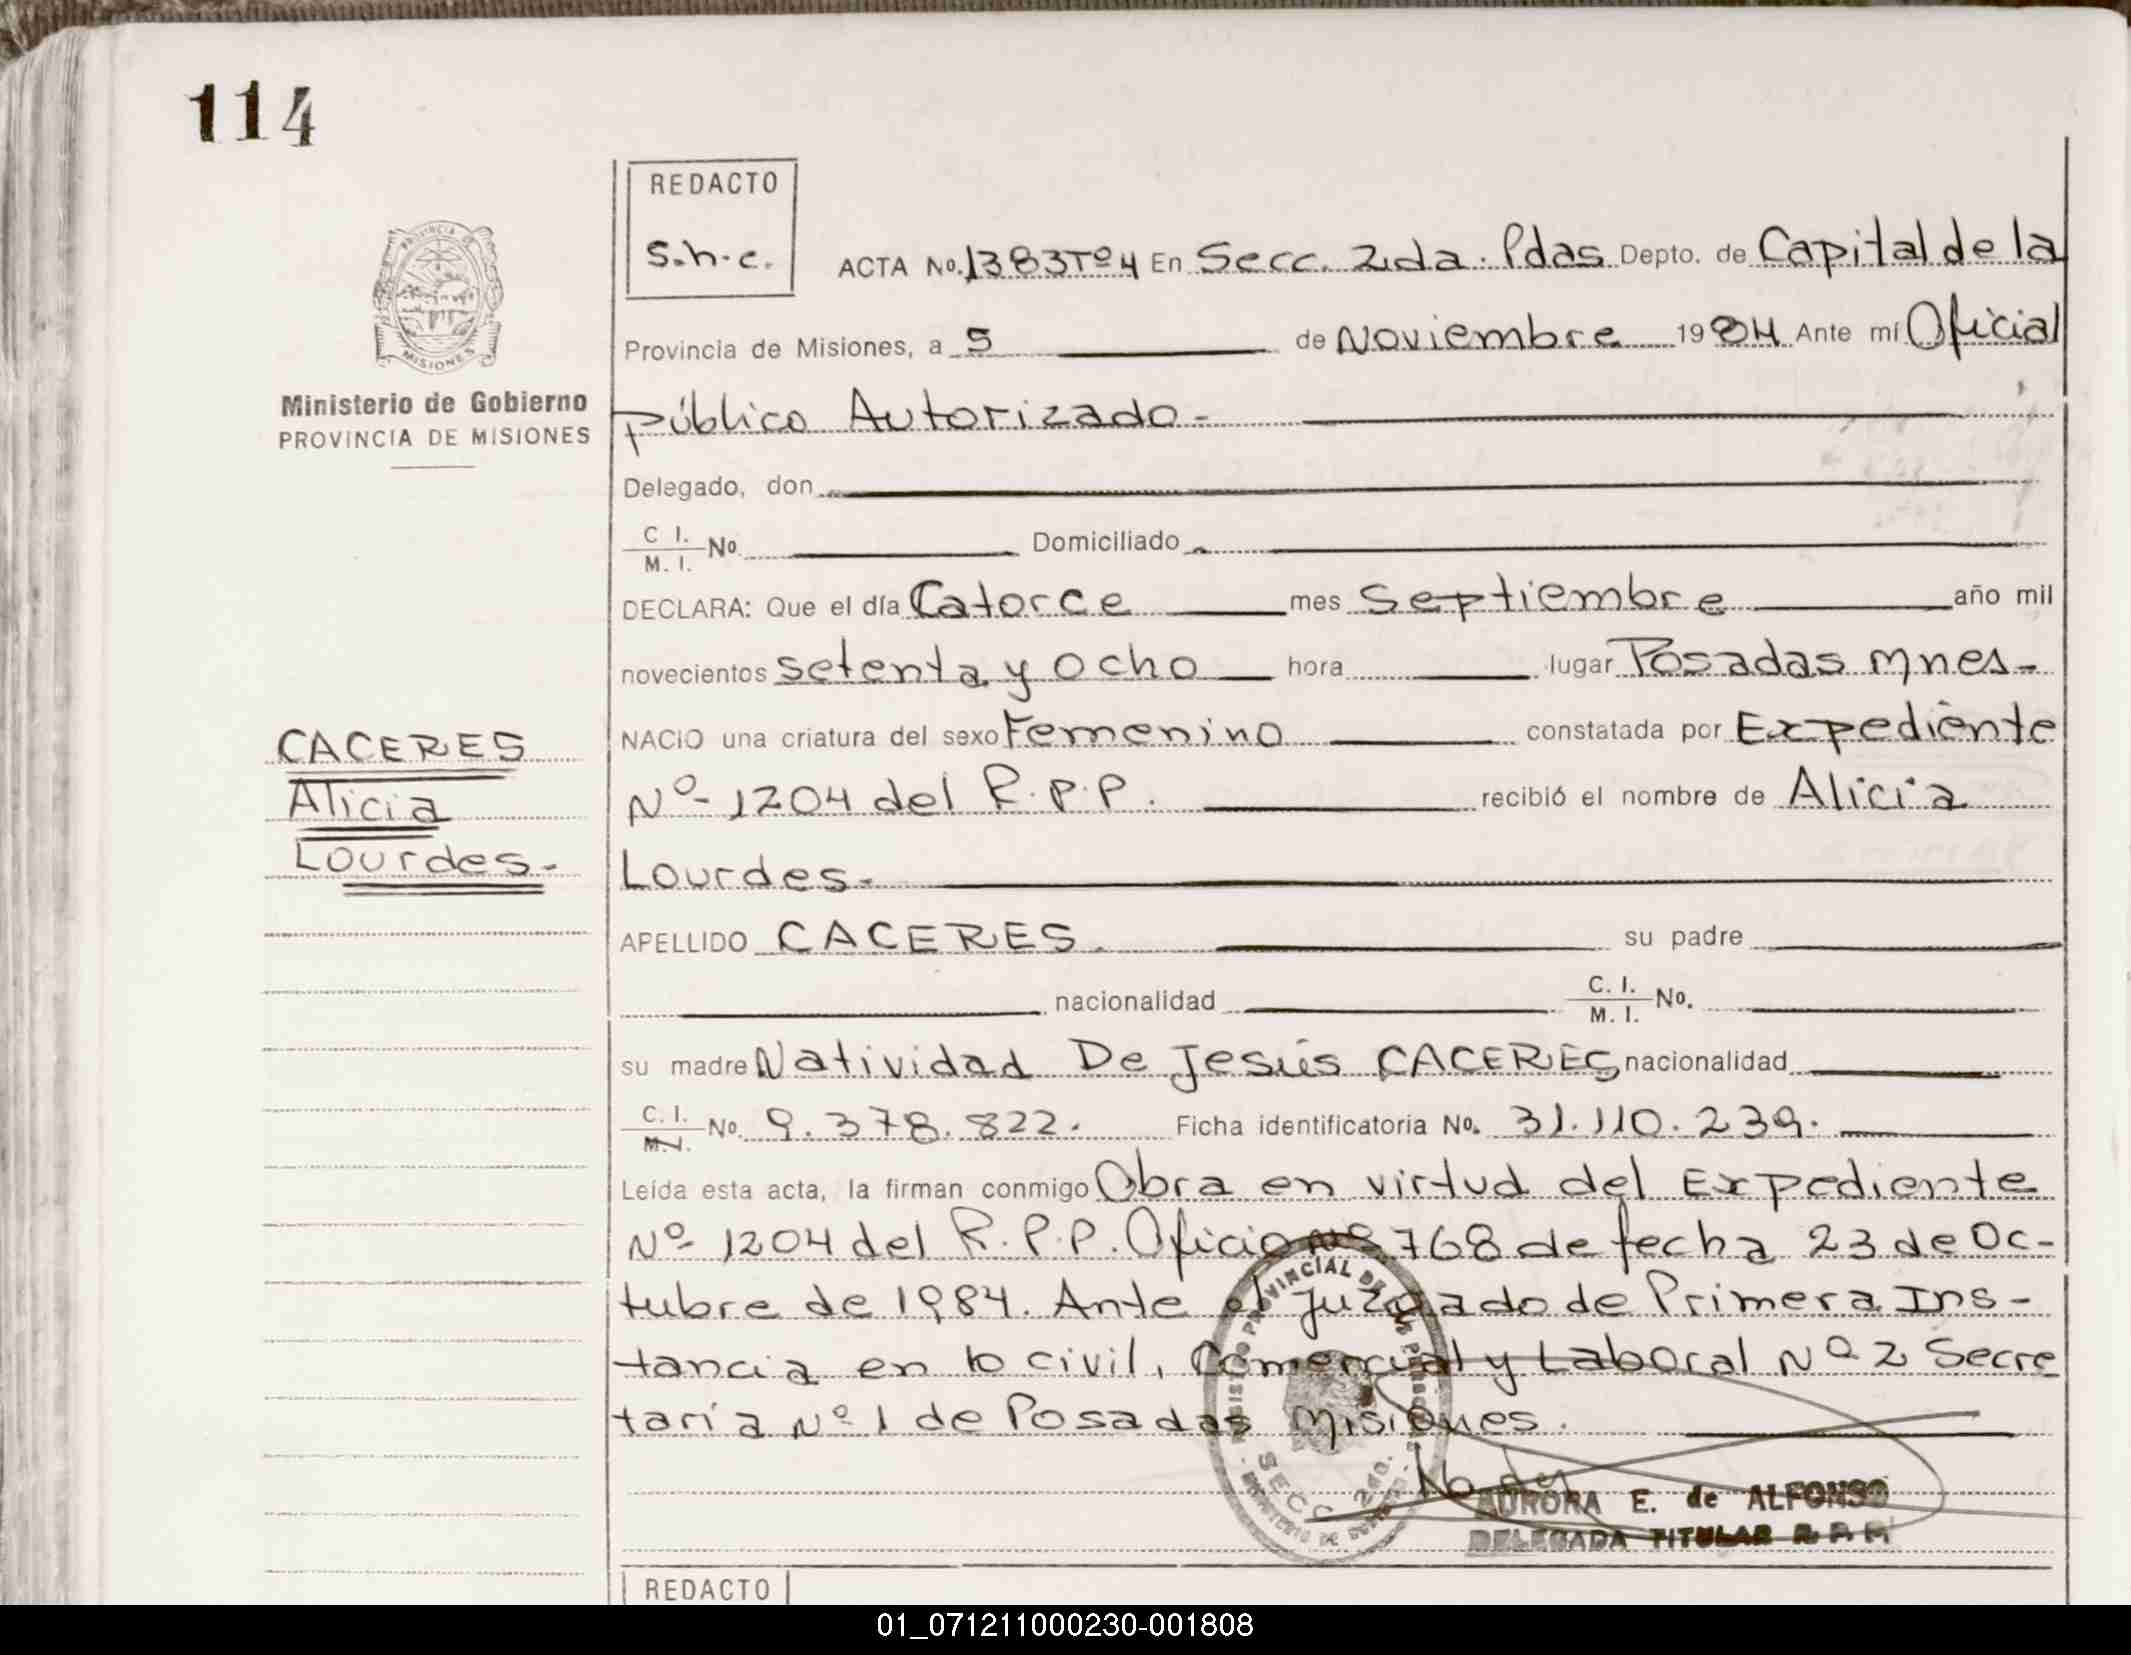 114
REDACTO
S.h.c.
ACTA No. 1383 Tº 4 En Secc. 2da. Pdas Depto. de Capital de la
Provincia de Misiones, a 5 de Noviembre 1984 Ante mí Oficial
Público Autorizado-
Delegado, don
C. I. M. I. No. Domiciliado
DECLARA: Que el día Catorce mes Septiembre año mil
novecientos setenta y ocho hora lugar Posadas Mnes-
NACIO una criatura del sexo Femenino constatada por Expediente
Nº- 1204 del R.P.P. recibió el nombre de Alicia
Lourdes-
APELLIDO CACERES. su padre
nacionalidad C. I. M. I. No.
su madre Natividad De Jesús CACERES nacionalidad
C. I. M. I. No. 9.378.822. Ficha identificatoria No. 31.110.239.
Leída esta acta, la firman conmigo Obra en virtud del Expediente
Nº- 1204 del R.P.P. Oficio Nº 768 de fecha 23 de Oc-
tubre de 1984. Ante el Juzgado de Primera Ins-
tancia en lo civil, Comercial y Laboral Nº 2 Secre
taría Nº 1 de Posadas Misiones.
AURORA E. de ALFONSO
DELEGADA TITULAR R.P.P.
REDACTO
PROVINCIA DE
MISIONES
Ministerio de Gobierno
PROVINCIA DE MISIONES
CACERES
Alicia
Lourdes-
REGISTRO PROVINCIAL DE LAS PERSONAS
SECC. 2da.
MINISTERIO DE GOBIERNO
01_071211000230-001808